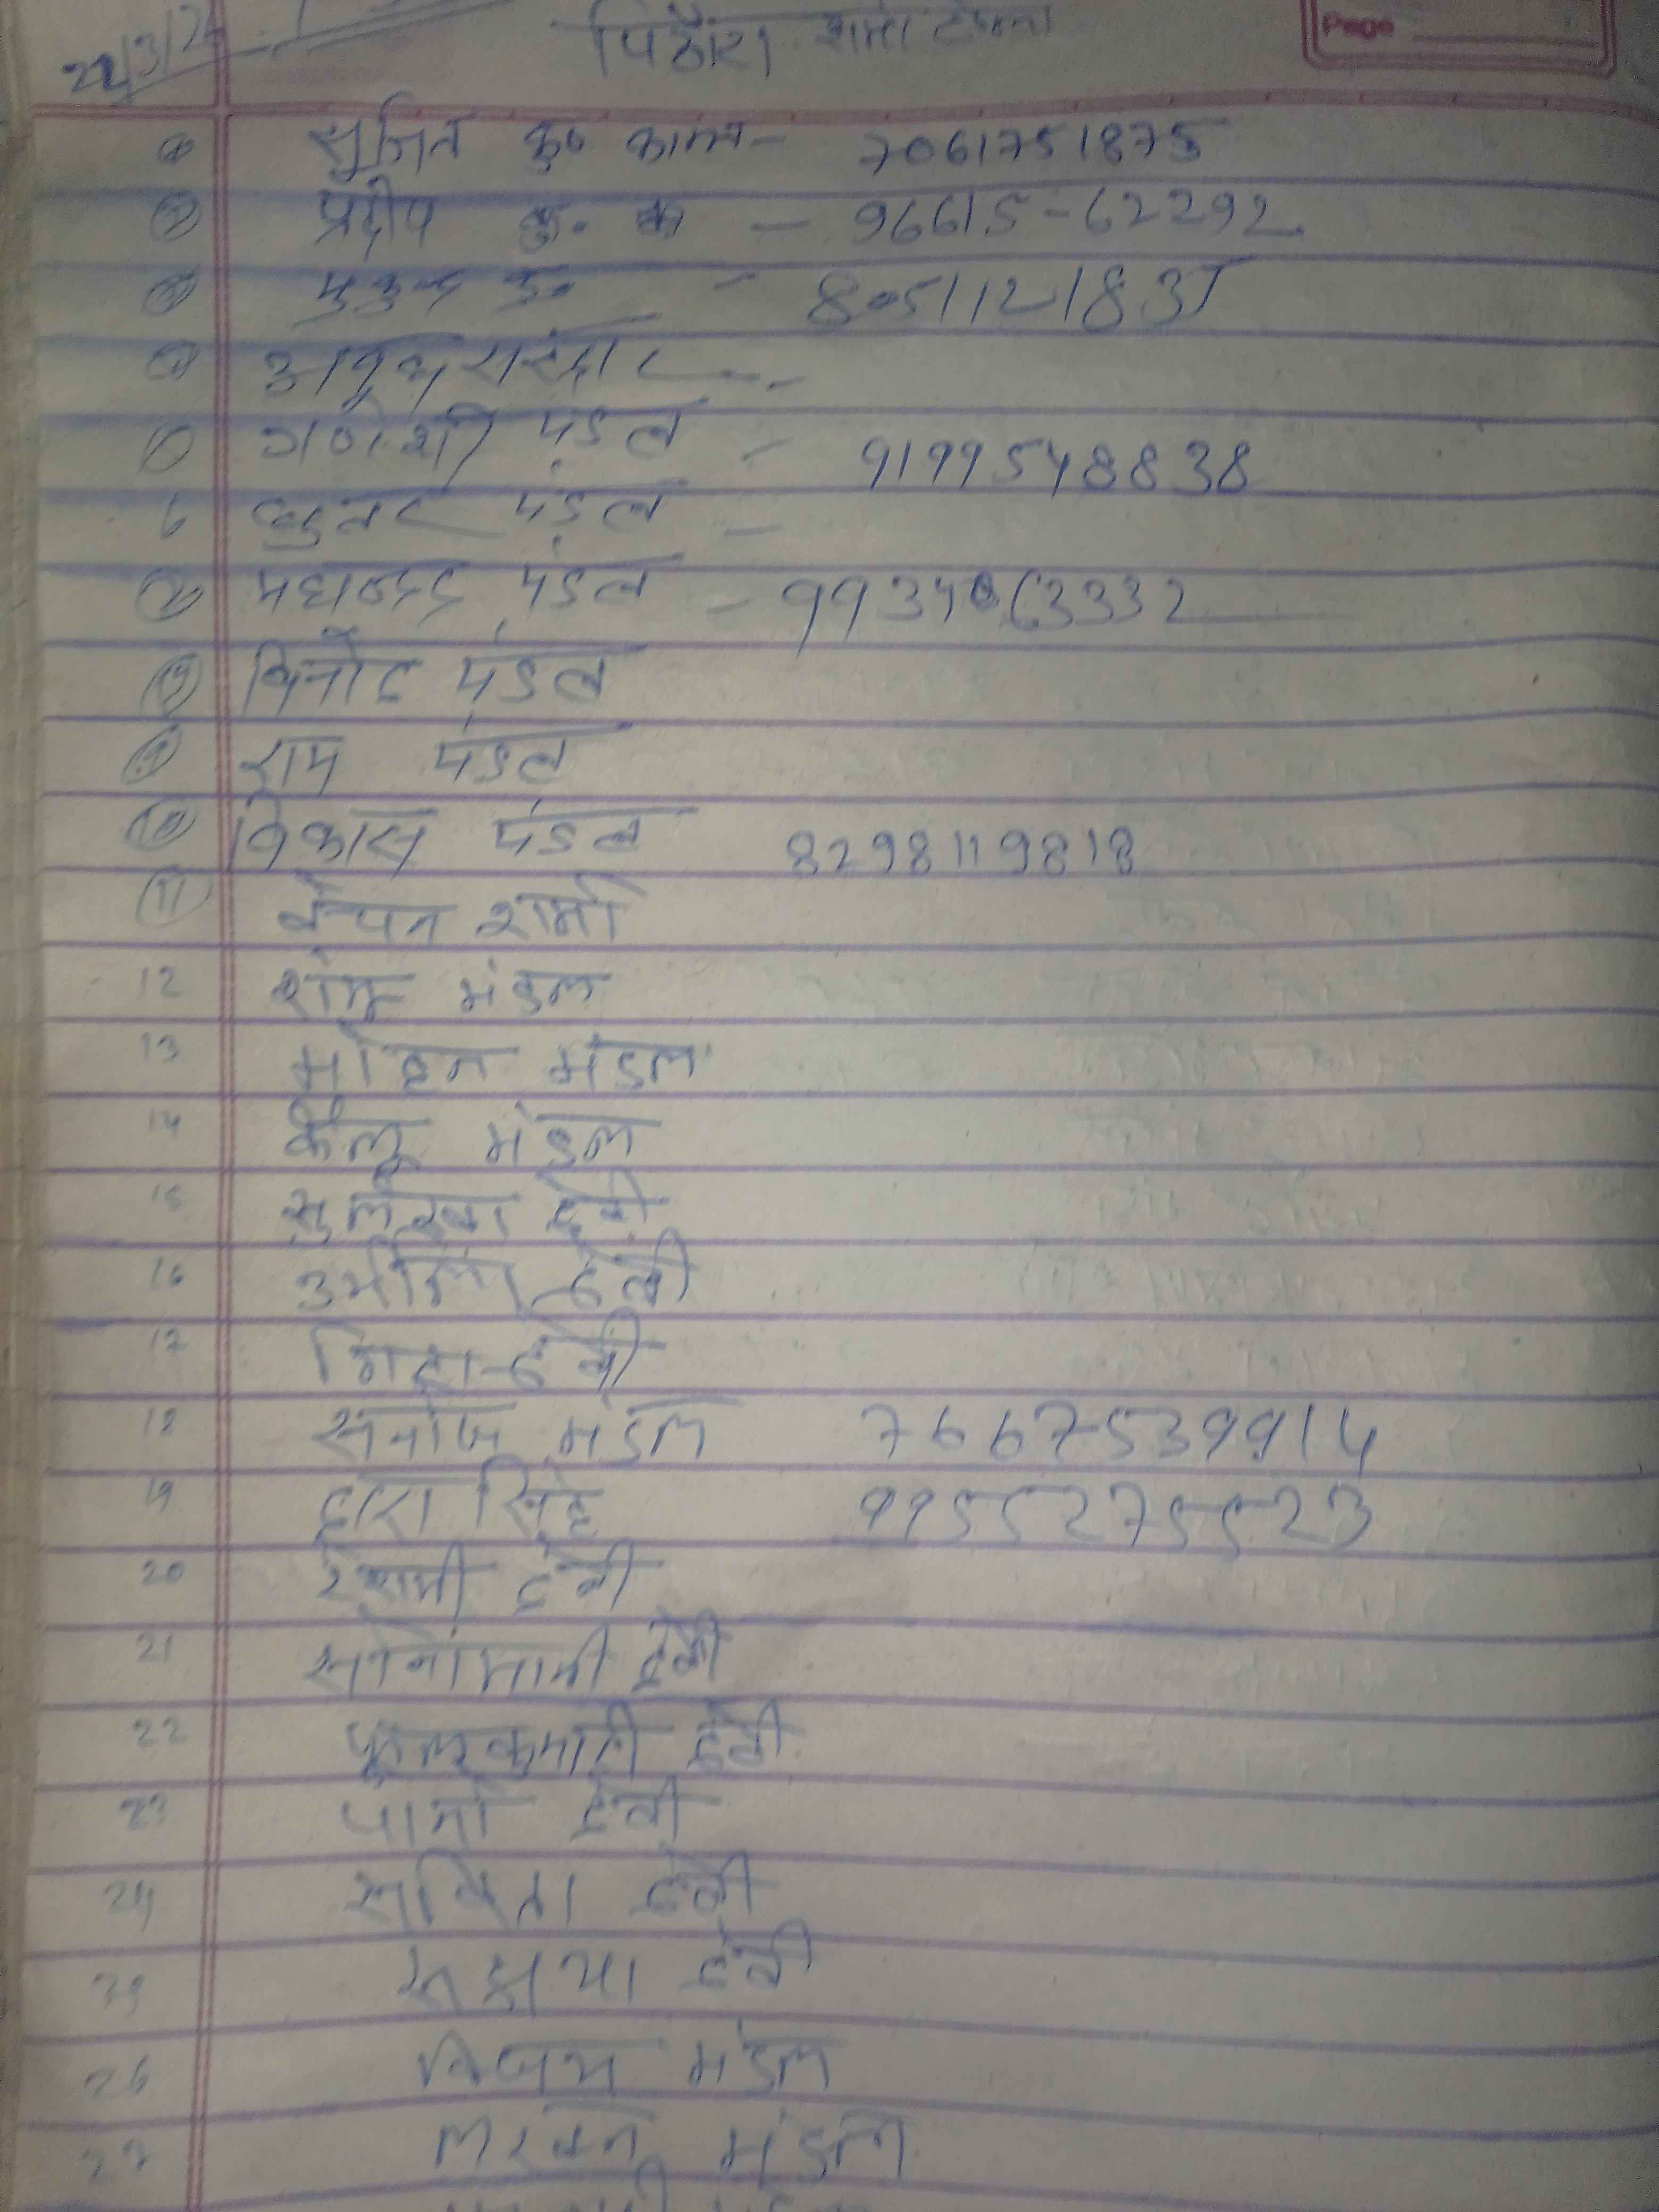 Page
22/3/2
पिठौरा
① सुमित कु० काल्व - 7061751875
② प्रदीप कु. - 96615-62292
③ कु० - 8051121837
④
⑤ गणेशी मंडल - 9199548838
6 मंडल -
⑦ मंडल - 9934063332
⑧ विनोद मंडल
⑨ राम मंडल
⑩ विकास मंडल 8298119818
⑪ वेचन शर्मा
12 शंभू मंडल
13 मोहन मंडल
14 कैलू मंडल
15 सुलेखा देवी
16 उर्मीला देवी
17 देवी
18 सनोज मंडल 7667539914
19 द्वारा सिंह 9955275523
20 रेशमी देवी
21 सोनामानी देवी
22 फूलकुमारी देवी
23 पानो देवी
24 सविता देवी
25 देवी
26 विजय मंडल
27 लखन मंडल